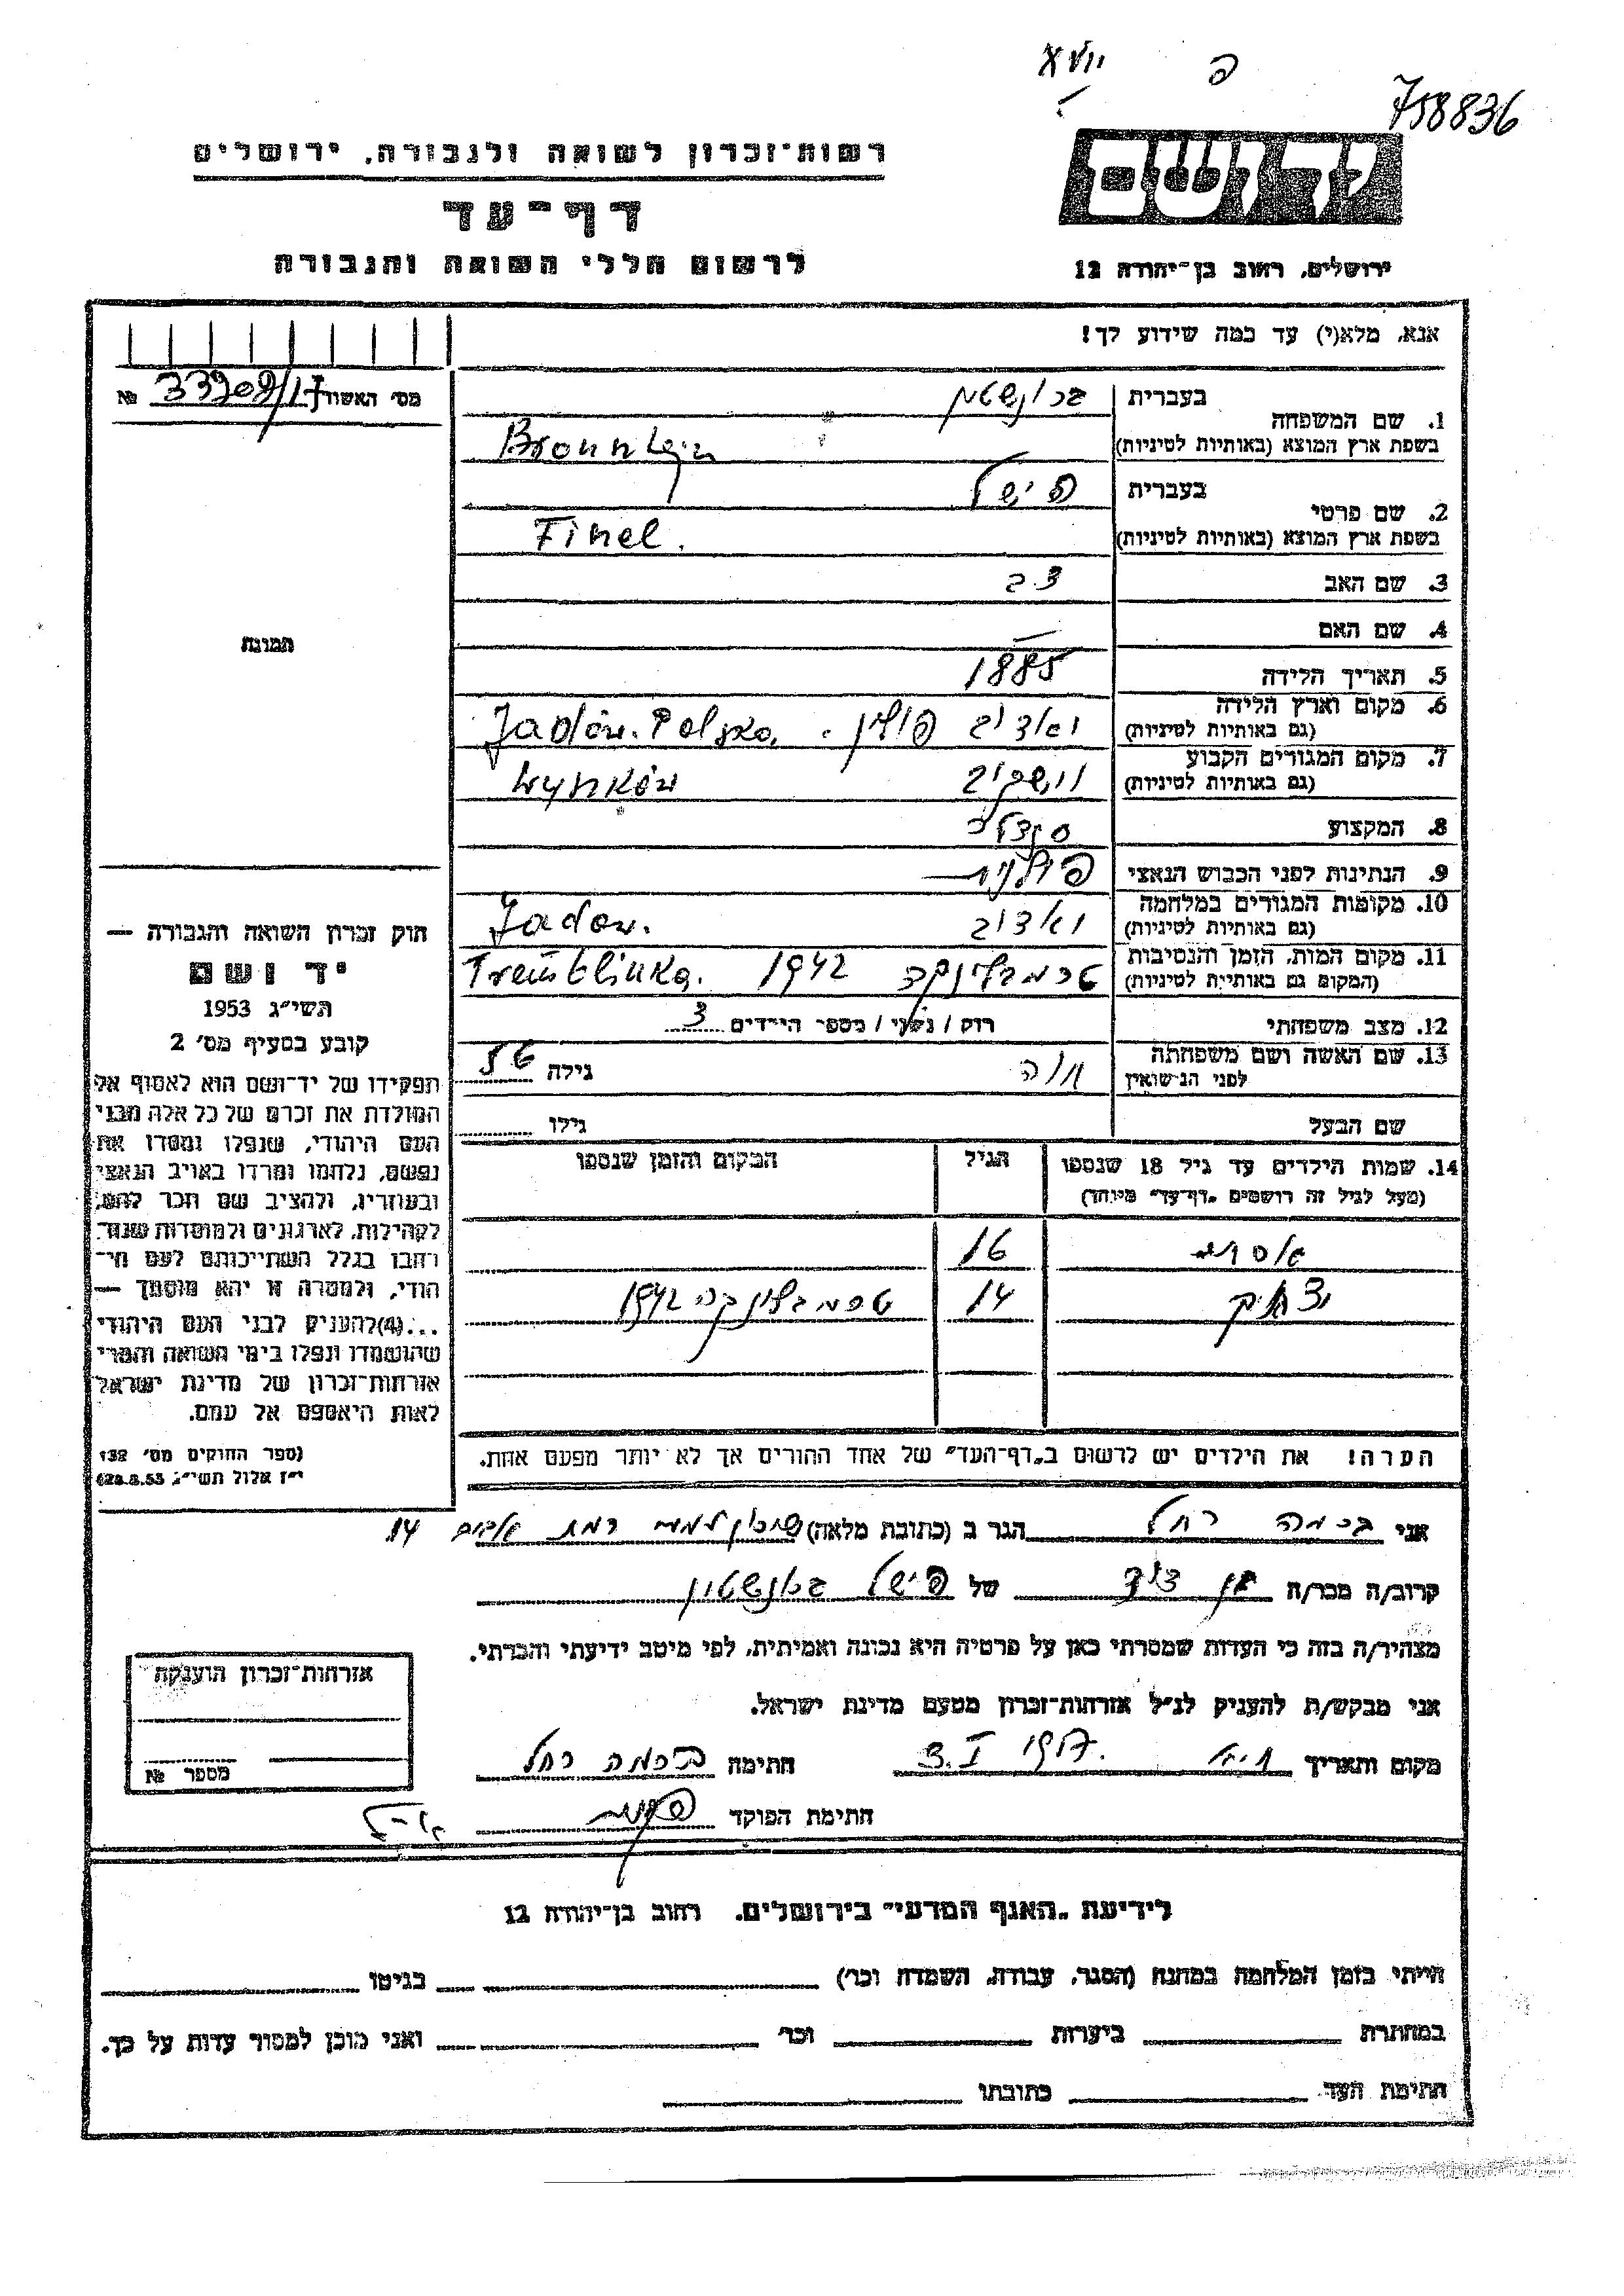 758836
רשות-זכרון לשואה ולגבורה, ירושלים
יד ושם
דף-עד
לרשום חללי השואה והגבורה
ירושלים, רחוב בן-יהודה 12
אנא, מלא(י) עד כמה שידוע לך!
מס׳ האשור 33908/17 №
1. שם המשפחה
בעברית
בשפת ארץ המוצא (באותיות לטיניות)
2. שם פרטי
בעברית פישל
בשפת ארץ המוצא (באותיות לטיניות)
3. שם האב צבי
4. שם האם —
תמונה
5. תאריך הלידה 1885
6. מקום וארץ הלידה
(גם באותיות לטיניות) יאדוב פולין. Jadów. Polska
7. מקום המגורים הקבוע
(גם באותיות לטיניות) וישקוב
8. המקצוע סנדלר
9. הנתינות לפני הכבוש הנאצי פולנית
10. מקומות המגורים במלחמה
(גם באותיות לטיניות) יאדוב Jadow.
11. מקום המות, הזמן והנסיבות
(המקום גם באותיות לטיניות) טרמבלינקה 1942
12. מצב משפחתי רוק / נשוי / מספר הילדים 3
13. שם האשה ושם משפחתה
לפני הנישואין חנה גילה 56
שם הבעל גילו
14. שמות הילדים עד גיל 18 שנספו הגיל המקום והזמן שנספו
(מעל לגיל זה רושמים „דף-עד״ מיוחד)
אסתר 16
יצחק 14 טרמבלינקה 1942
הערה! את הילדים יש לרשום ב„דף-העד״ של אחד ההורים אך לא יותר מפעם אחת.
חוק זכרון השואה והגבורה —
יד ושם
תשי״ג 1953
קובע בסעיף מס׳ 2
תפקידו של יד-ושם הוא לאסוף אל
המולדת את זכרם של כל אלה מבני
העם היהודי, שנפלו ומסרו את
נפשם, נלחמו ומרדו באויב הנאצי
ובעוזריו, ולהציב שם וזכר להם,
לקהילות, לארגונים ולמוסדות שנח-
רבו בגלל השתייכותם לעם הי-
הודי, ולמטרה זו יהא מוסמך —
...(4)להעניק לבני העם היהודי
שהושמדו ונפלו בימי השואה והמרי
אזרחות-זכרון של מדינת ישראל
לאות היאספם אל עמם.
(ספר החוקים מס׳ 132
י״ז אלול תשי״ג 28.8.53)
אני ברמה רחל הגר ב (כתובת מלאה) רמת אביב 14
קרוב/ה מכר/ה בן דוד של פישל
מצהיר/ה בזה כי העדות שמסרתי כאן על פרטיה היא נכונה ואמיתית, לפי מיטב ידיעתי והכרתי.
אני מבקש/ת להעניק לנ״ל אזרחות-זכרון מטעם מדינת ישראל.
מקום ותאריך חתימה ברמה רחל
חתימת הפוקד
אזרחות-זכרון הוענקה
מספר №
לידיעת „האגף המדעי״ בירושלים, רחוב בן-יהודה 12
הייתי בזמן המלחמה במחנה (הסגר, עבודה, השמדה וכו׳) בגיטו
במחתרת ביערות וכו׳ ואני מוכן למסור עדות על כך.
חתימת העד כתובתו